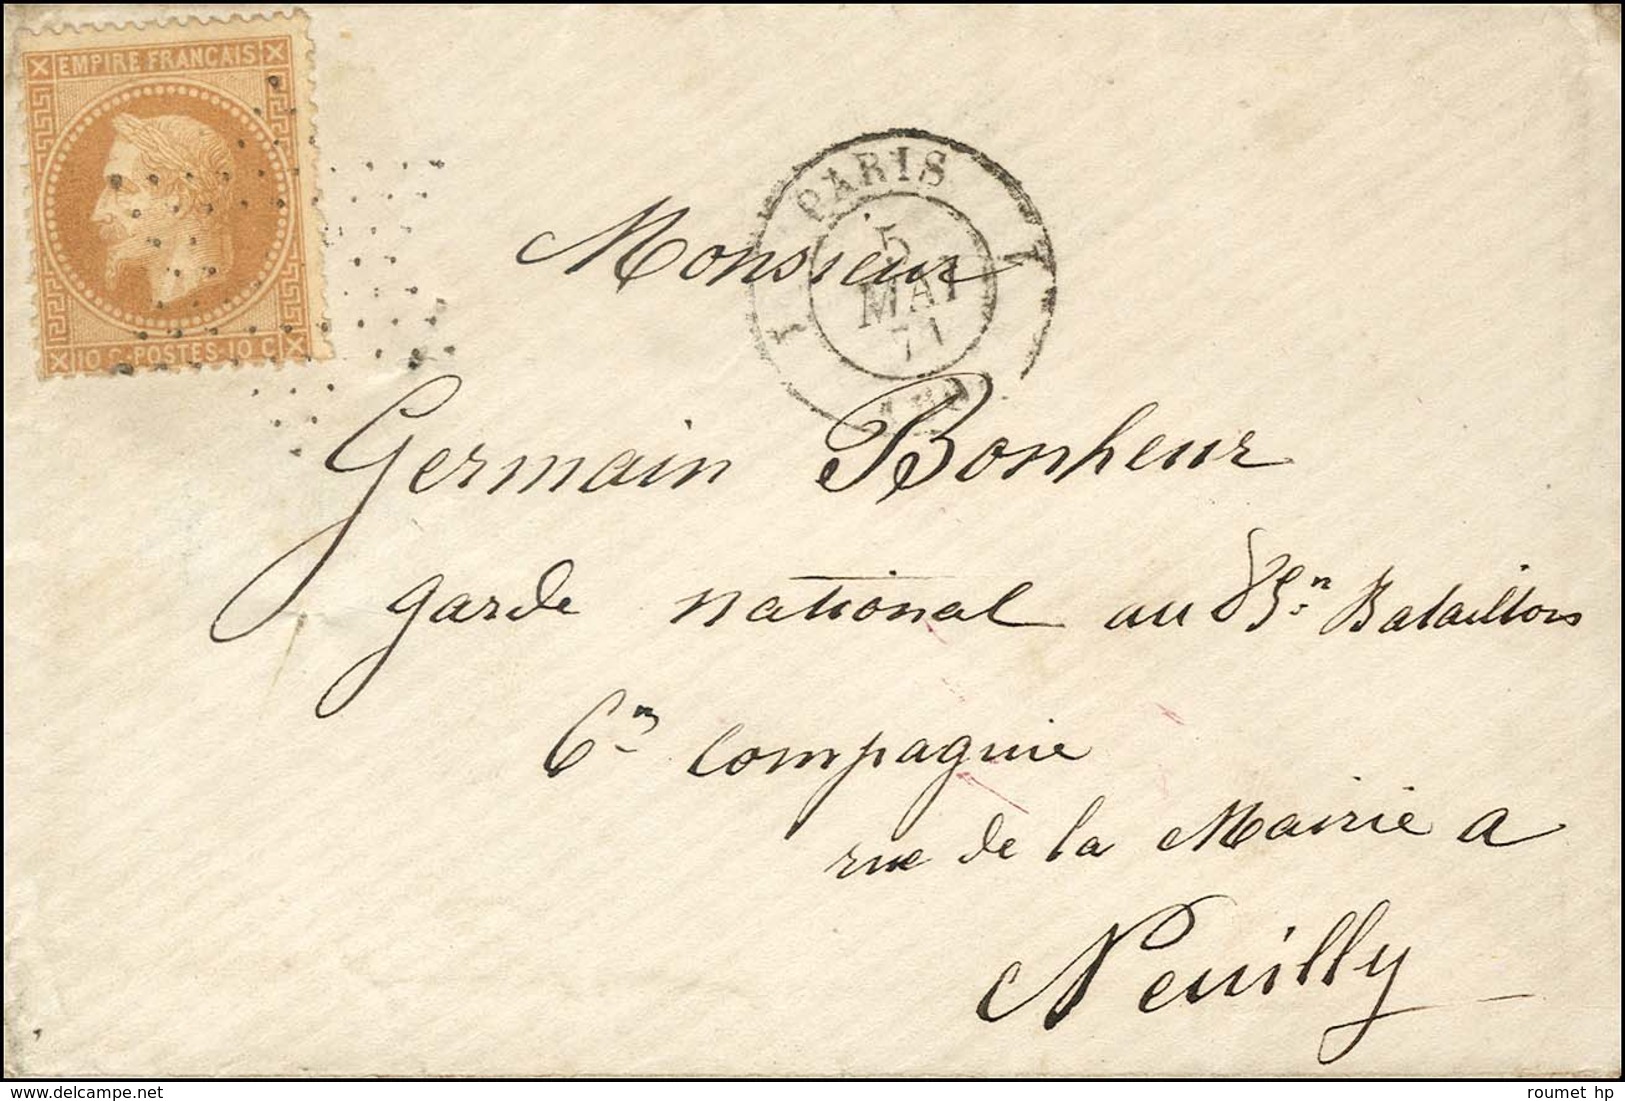 EMPIRE FRANCAIS
10 C. POSTES 10 C
PARIS
5
MAI
71
Monsieur
Germain Bonheur
garde national au 85.n Bataillon
6n compagnie
rue de la Mairie a
Neuilly
www.delcampe.net
roumet hp